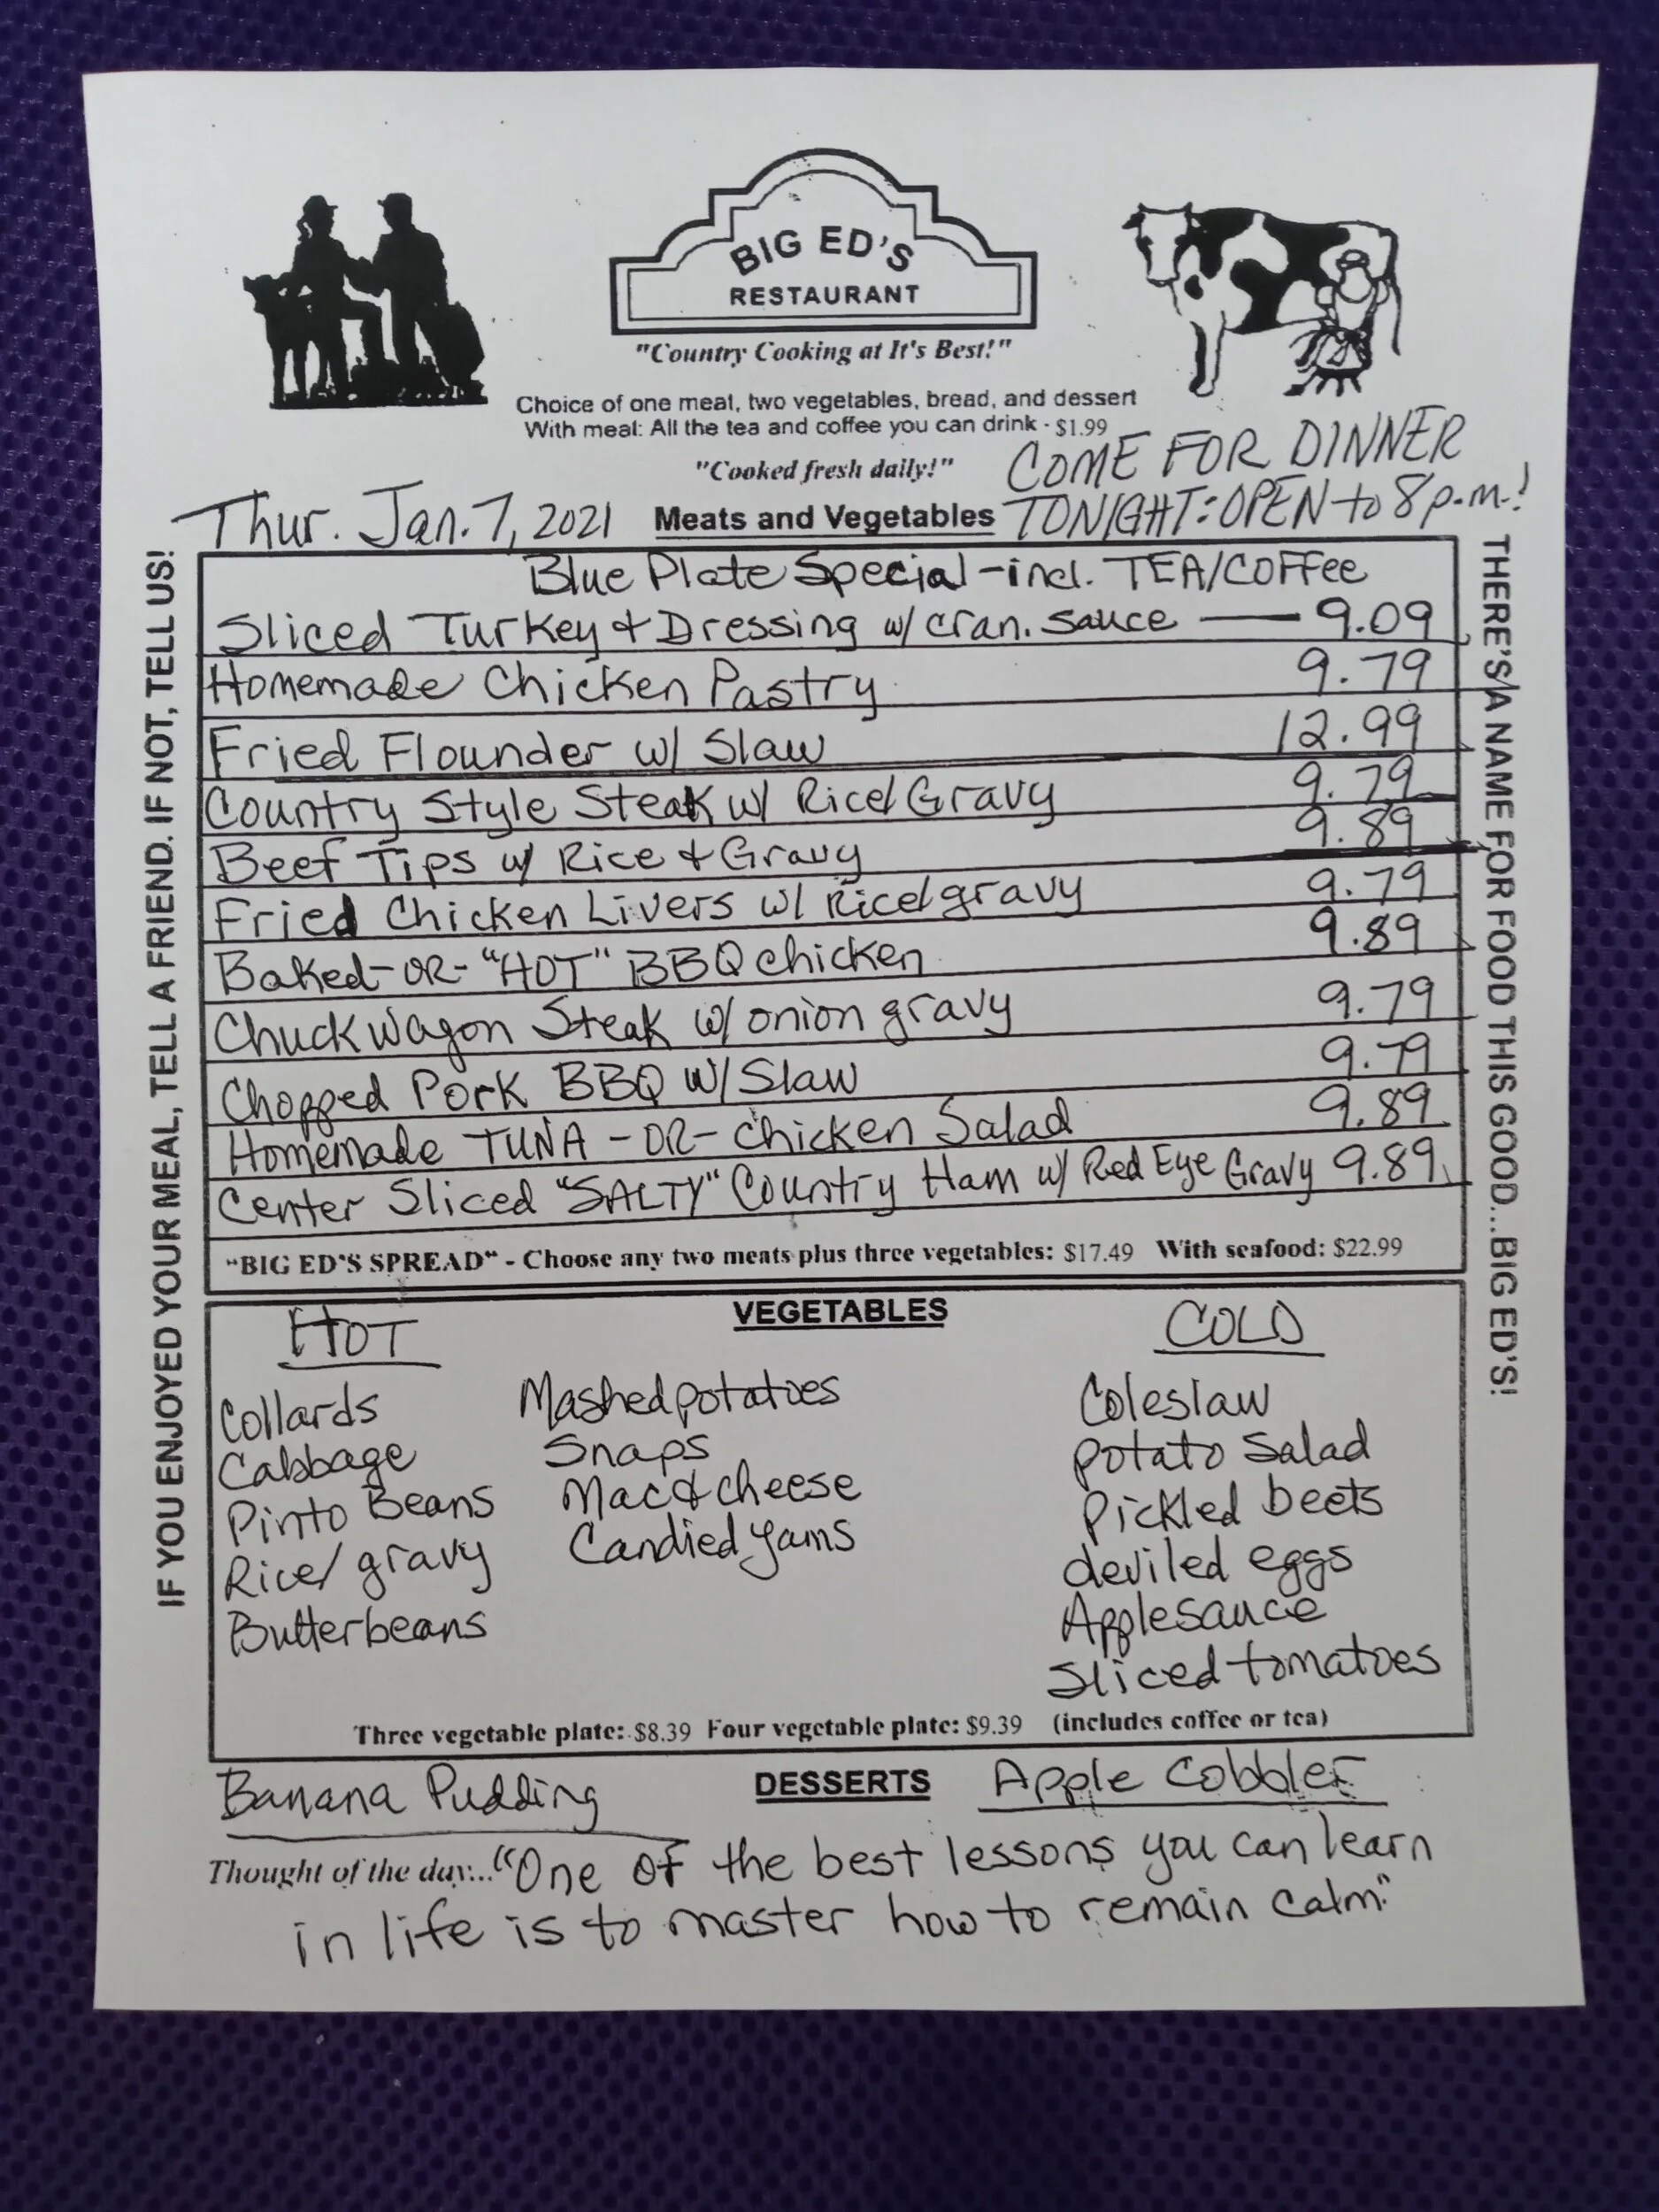 BIG ED'S
RESTAURANT
"Country Cooking at It's Best!"
Choice of one meat, two vegetables, bread, and dessert
With meal: All the tea and coffee you can drink - $1.99
"Cooked fresh daily!"
COME FOR DINNER
TONIGHT: OPEN to 8 p.m.!
Thur. Jan. 7, 2021
Meats and Vegetables
Blue Plate Special - incl. TEA/COFFee
Sliced Turkey & Dressing w/ cran. sauce — 9.09
Homemade Chicken Pastry 9.79
Fried Flounder w/ Slaw 12.99
Country Style Steak w/ Rice/Gravy 9.79
Beef Tips w/ Rice & Gravy 9.89
Fried Chicken Livers w/ rice/gravy 9.79
Baked -OR- "HOT" BBQ chicken 9.89
Chuckwagon Steak w/ onion gravy 9.79
Chopped Pork BBQ w/ Slaw 9.79
Homemade TUNA -OR- Chicken Salad 9.89
Center Sliced "SALTY" Country Ham w/ Red Eye Gravy 9.89
"BIG ED'S SPREAD" - Choose any two meats plus three vegetables: $17.49 With seafood: $22.99
IF YOU ENJOYED YOUR MEAL, TELL A FRIEND. IF NOT, TELL US!
THERE'S A NAME FOR FOOD THIS GOOD...BIG ED'S!
VEGETABLES
HOT
Collards
Cabbage
Pinto Beans
Rice/gravy
Butterbeans
Mashed potatoes
Snaps
Mac & cheese
Candied yams
COLD
Coleslaw
potato Salad
Pickled beets
deviled eggs
Applesauce
Sliced tomatoes
Three vegetable plate: $8.39 Four vegetable plate: $9.39 (includes coffee or tea)
DESSERTS
Banana Pudding
Apple Cobbler
Thought of the day... "One of the best lessons you can learn
in life is to master how to remain calm."